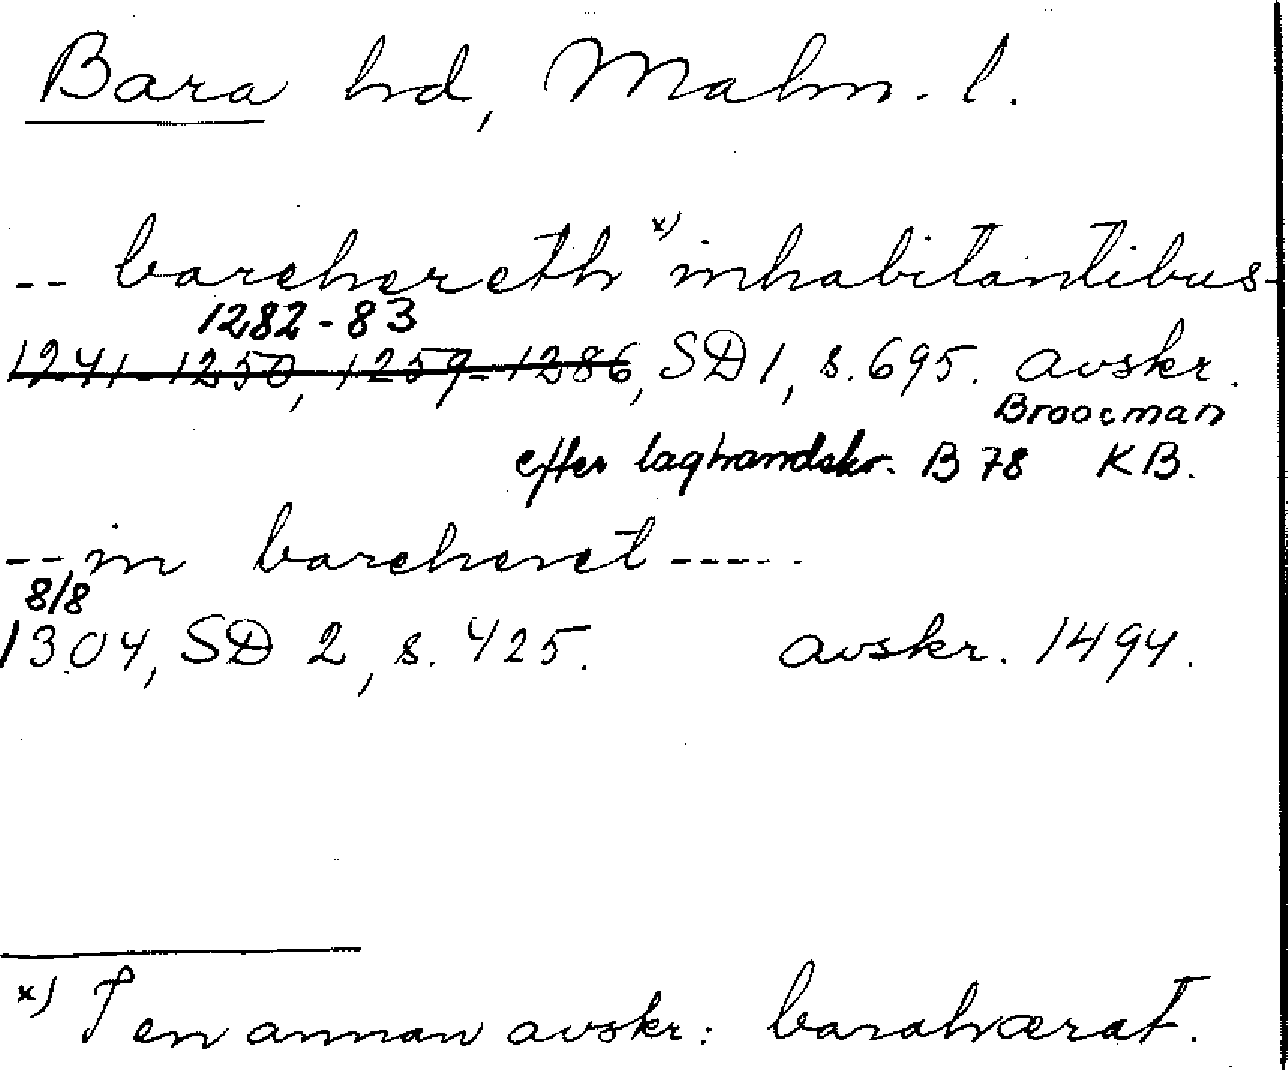 Bara hd, Malm. l.
-- barehereth x) inhabitantibus-
1282-83
1241-1250, 1259-1286, SD 1, s. 695. avskr.
Broocman
efter laghandskr. B 78 KB.
-- in bareheret -----
8/8
1304, SD 2, s. 425. avskr. 1494.
x) I en annan avskr: barahærat.